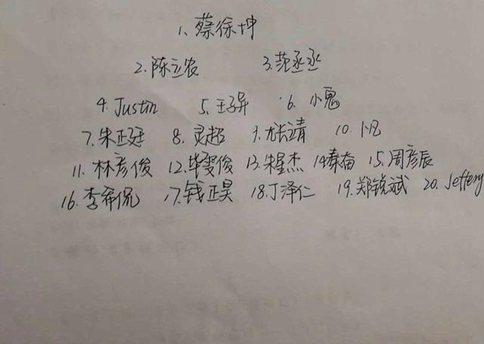 1、蔡徐坤
2、陈立农 3、范丞丞
4、Justin 5、王子异 6、小鬼
7、朱正廷 8、灵超 9、尤长靖 10、卜凡
11、林彦俊 12、毕雯珺 13、朱星杰 14、秦奋 15、周彦辰
16、李希侃 17、钱正昊 18、丁泽仁 19、郑锐彬 20、Jeffery